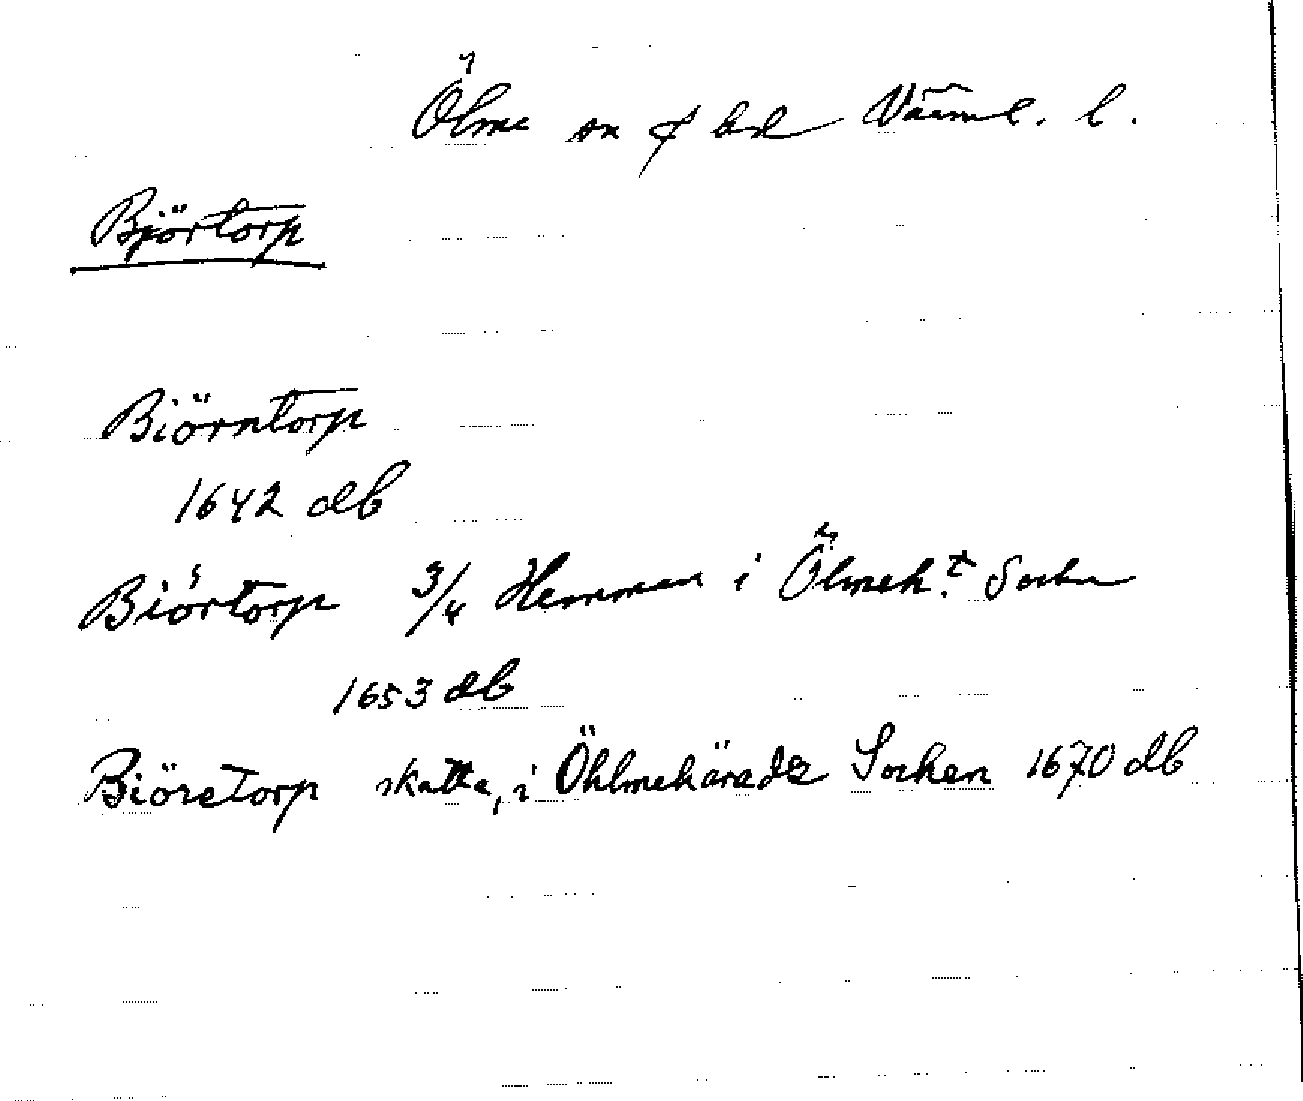 Ölme sn o hd Värml. l.
Björtorp
Biörntorp
1642 db
Biörtorp 3/4 Hemman i Ölmeh.t Sochn
1653 db
Biöretorp skatte, i Öhlmehäradz Sochen 1670 db